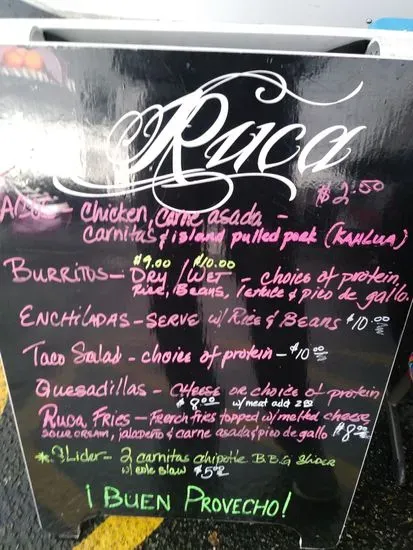 Ruca
$2.50
chicken, carne asada -
carnitas & island pulled pork (KAHLUA)
$9.00 $10.00
BURRITOS - DRY / WET - choice of protein,
Rice, Beans, lettuce & pico de gallo
ENCHILADAS - SERVE w/ Rice & Beans $10.00
Taco Salad - choice of protein - $10.00
Quesadillas - CHEESE OR choice of protein
$8.00 w/ meat add 2
RUCA FRIES - French fries topped w/ melted cheese,
SOUR CREAM, jalapeño & carne asada & pico de gallo $8.00
*SLider - 2 carnitas chipotle B.B.Q Slider
w/ cole slaw $5.00
¡BUEN PROVECHO!